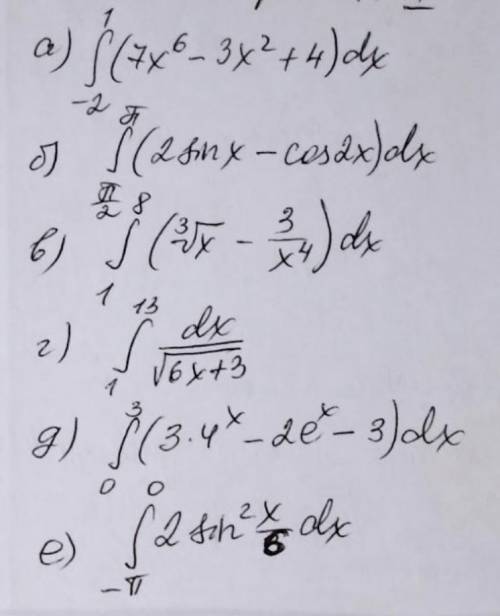 а) ∫₋₂¹ (7x⁶ − 3x² + 4) dx
б) ∫_{π/2}^{π} (2 sin x − cos 2x) dx
в) ∫₁⁸ (∛x − 3/x⁴) dx
г) ∫₁¹³ dx/√(6x+3)
д) ∫₀³ (3·4ˣ − 2eˣ − 3) dx
е) ∫_{−π}^{0} 2 sin² x/6 dx